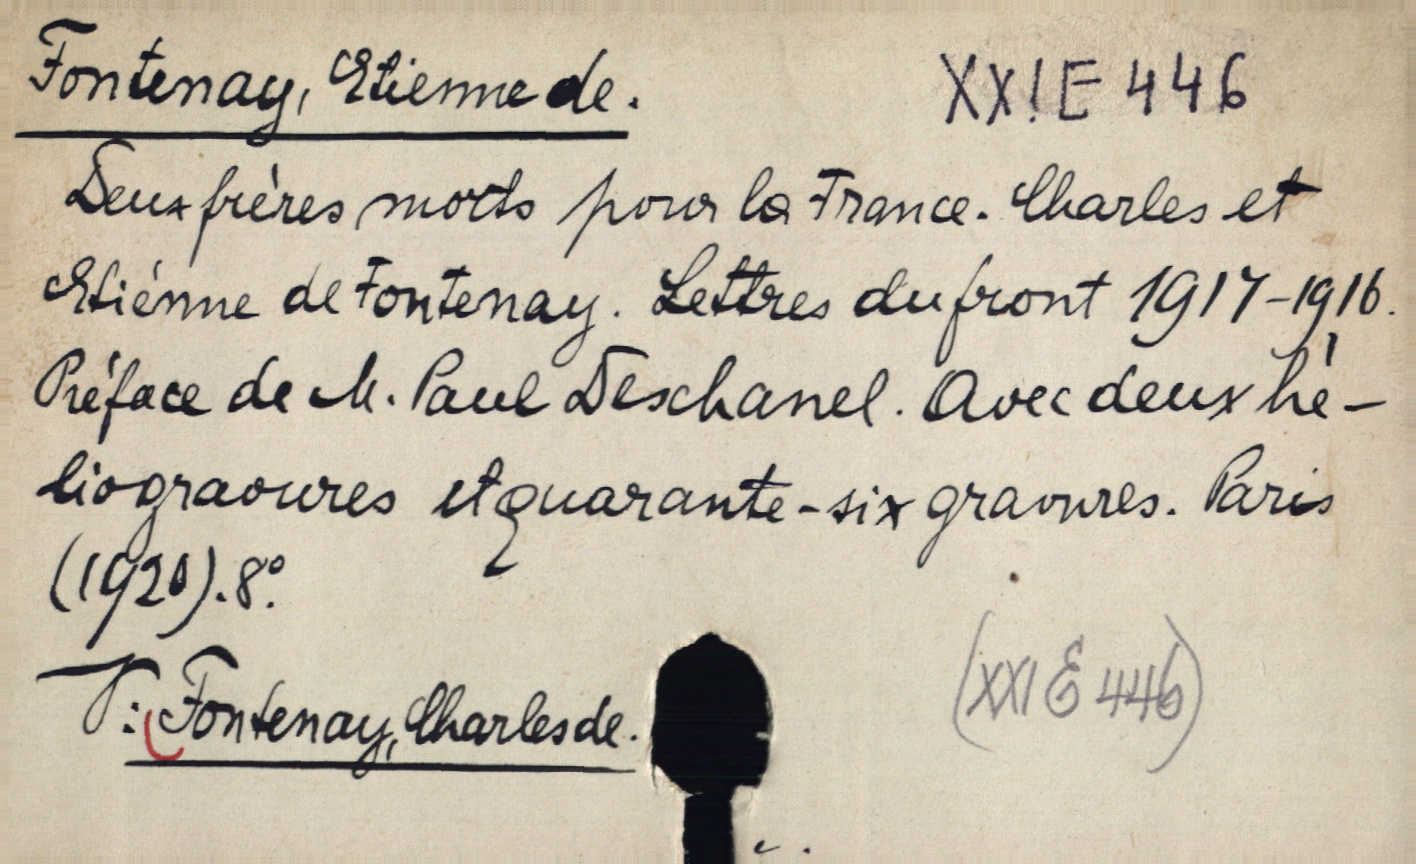 Fontenay, Etienne de.
XXI E 446
Deux frères morts pour la France. Charles et
Etiénne de Fontenay. Lettres du front 1917-1916.
Préface de M. Paul Deschanel. Avec deux hé-
liogravures et quarante-six gravures. Paris
(1920). 8°.
V: Fontenay, Charles de.
(XXI E 446)